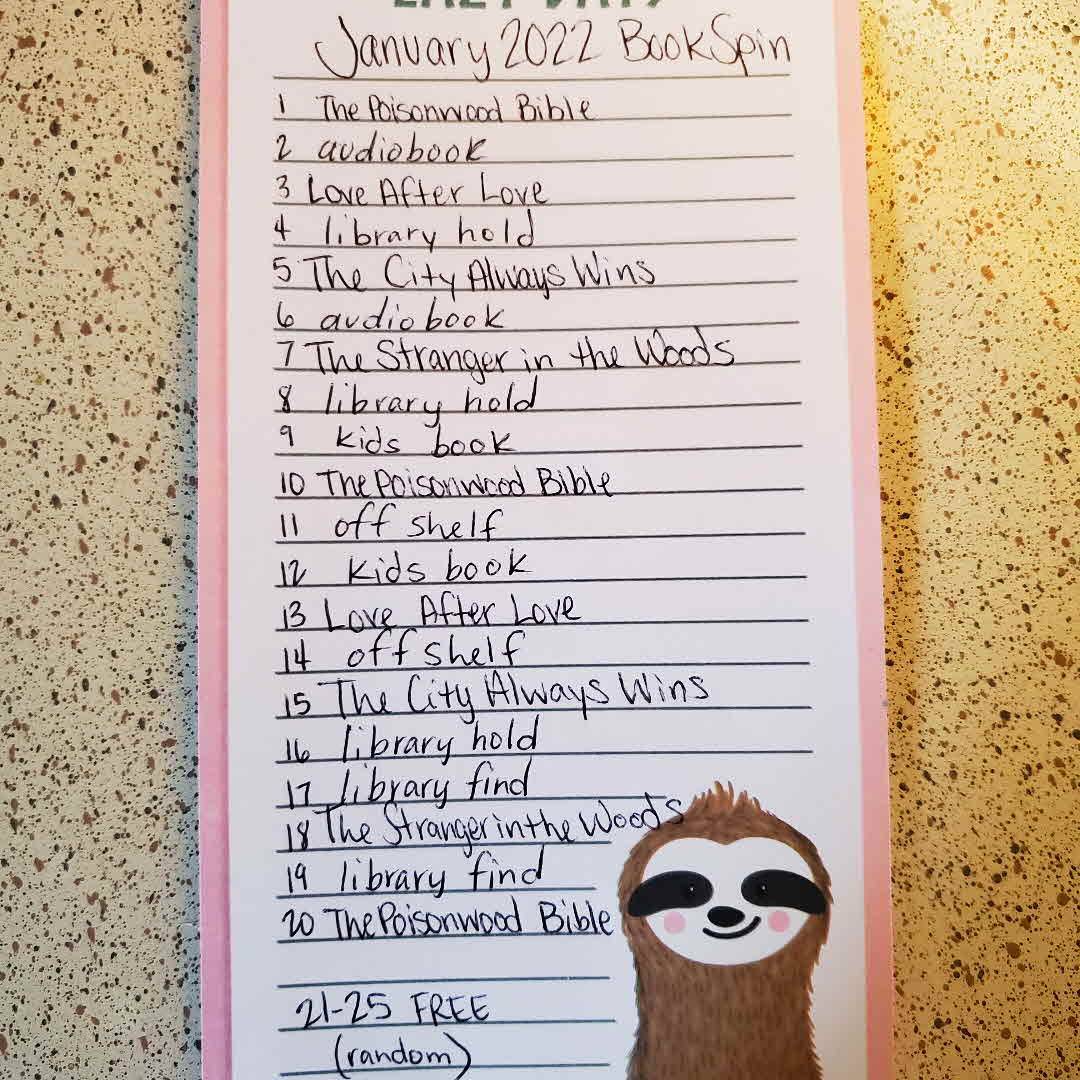 LAZY DAYS
January 2022 BookSpin
1 The Poisonwood Bible
2 audiobook
3 Love After Love
4 library hold
5 The City Always Wins
6 audiobook
7 The Stranger in the Woods
8 library hold
9 kids book
10 The Poisonwood Bible
11 off shelf
12 kids book
13 Love After Love
14 off shelf
15 The City Always Wins
16 library hold
17 library find
18 The Stranger in the Woods
19 library find
20 The Poisonwood Bible
21-25 FREE
(random)